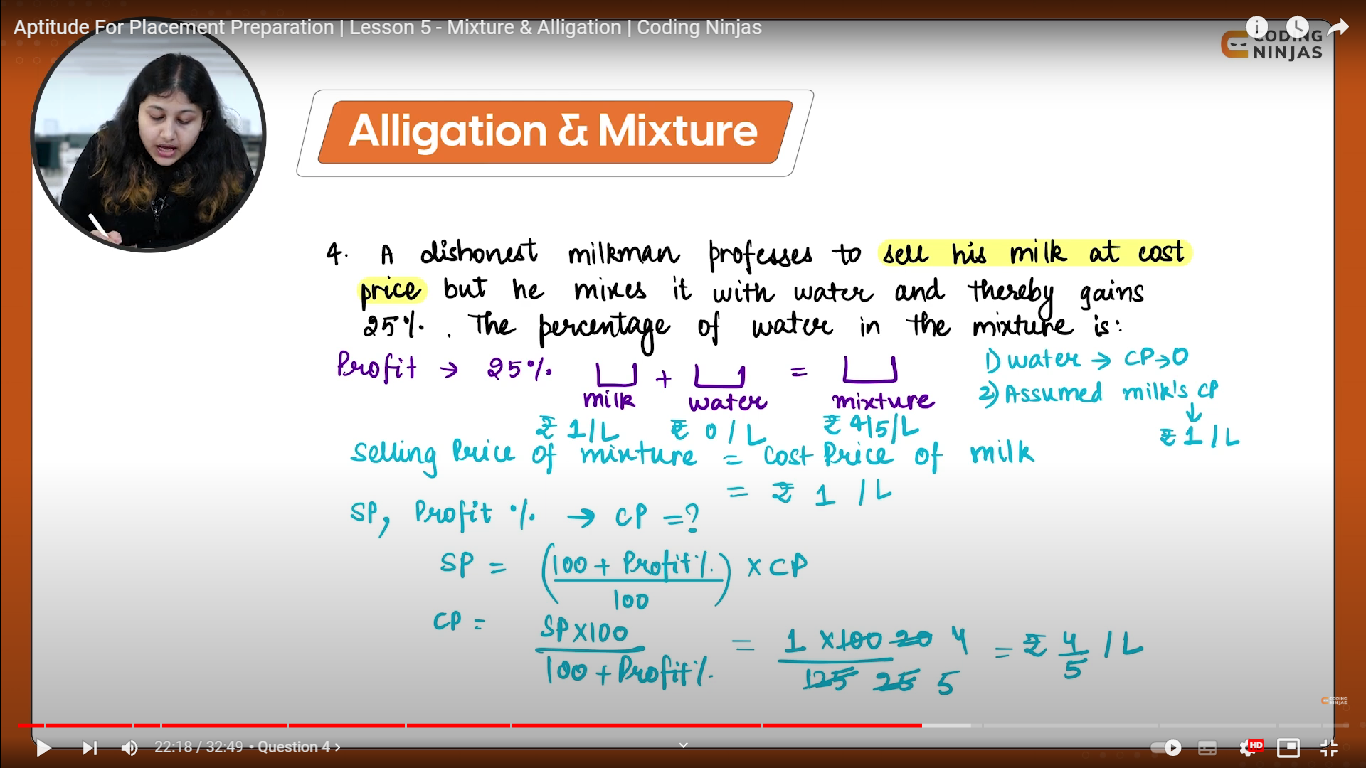 Aptitude For Placement Preparation | Lesson 5 - Mixture & Alligation | Coding Ninjas
CODING
NINJAS
Alligation & Mixture
4. A dishonest milkman professes to sell his milk at cost
price but he mixes it with water and thereby gains
25%. The percentage of water in the mixture is:
Profit → 25%
milk + water = mixture
₹ 1/L ₹ 0/L ₹ 4/5/L
1) water → CP→0
2) Assumed milk's CP
↓
₹ 1/L
Selling Price of mixture = Cost Price of milk
= ₹ 1 /L
SP, Profit % → CP =?
SP = (100 + Profit% / 100) × CP
CP = SP×100 / 100 + Profit% = 1 ×100 20 4 / 125 25 5 = ₹ 4/5 /L
CODING
NINJAS
22:18 / 32:49 • Question 4 ›
HD